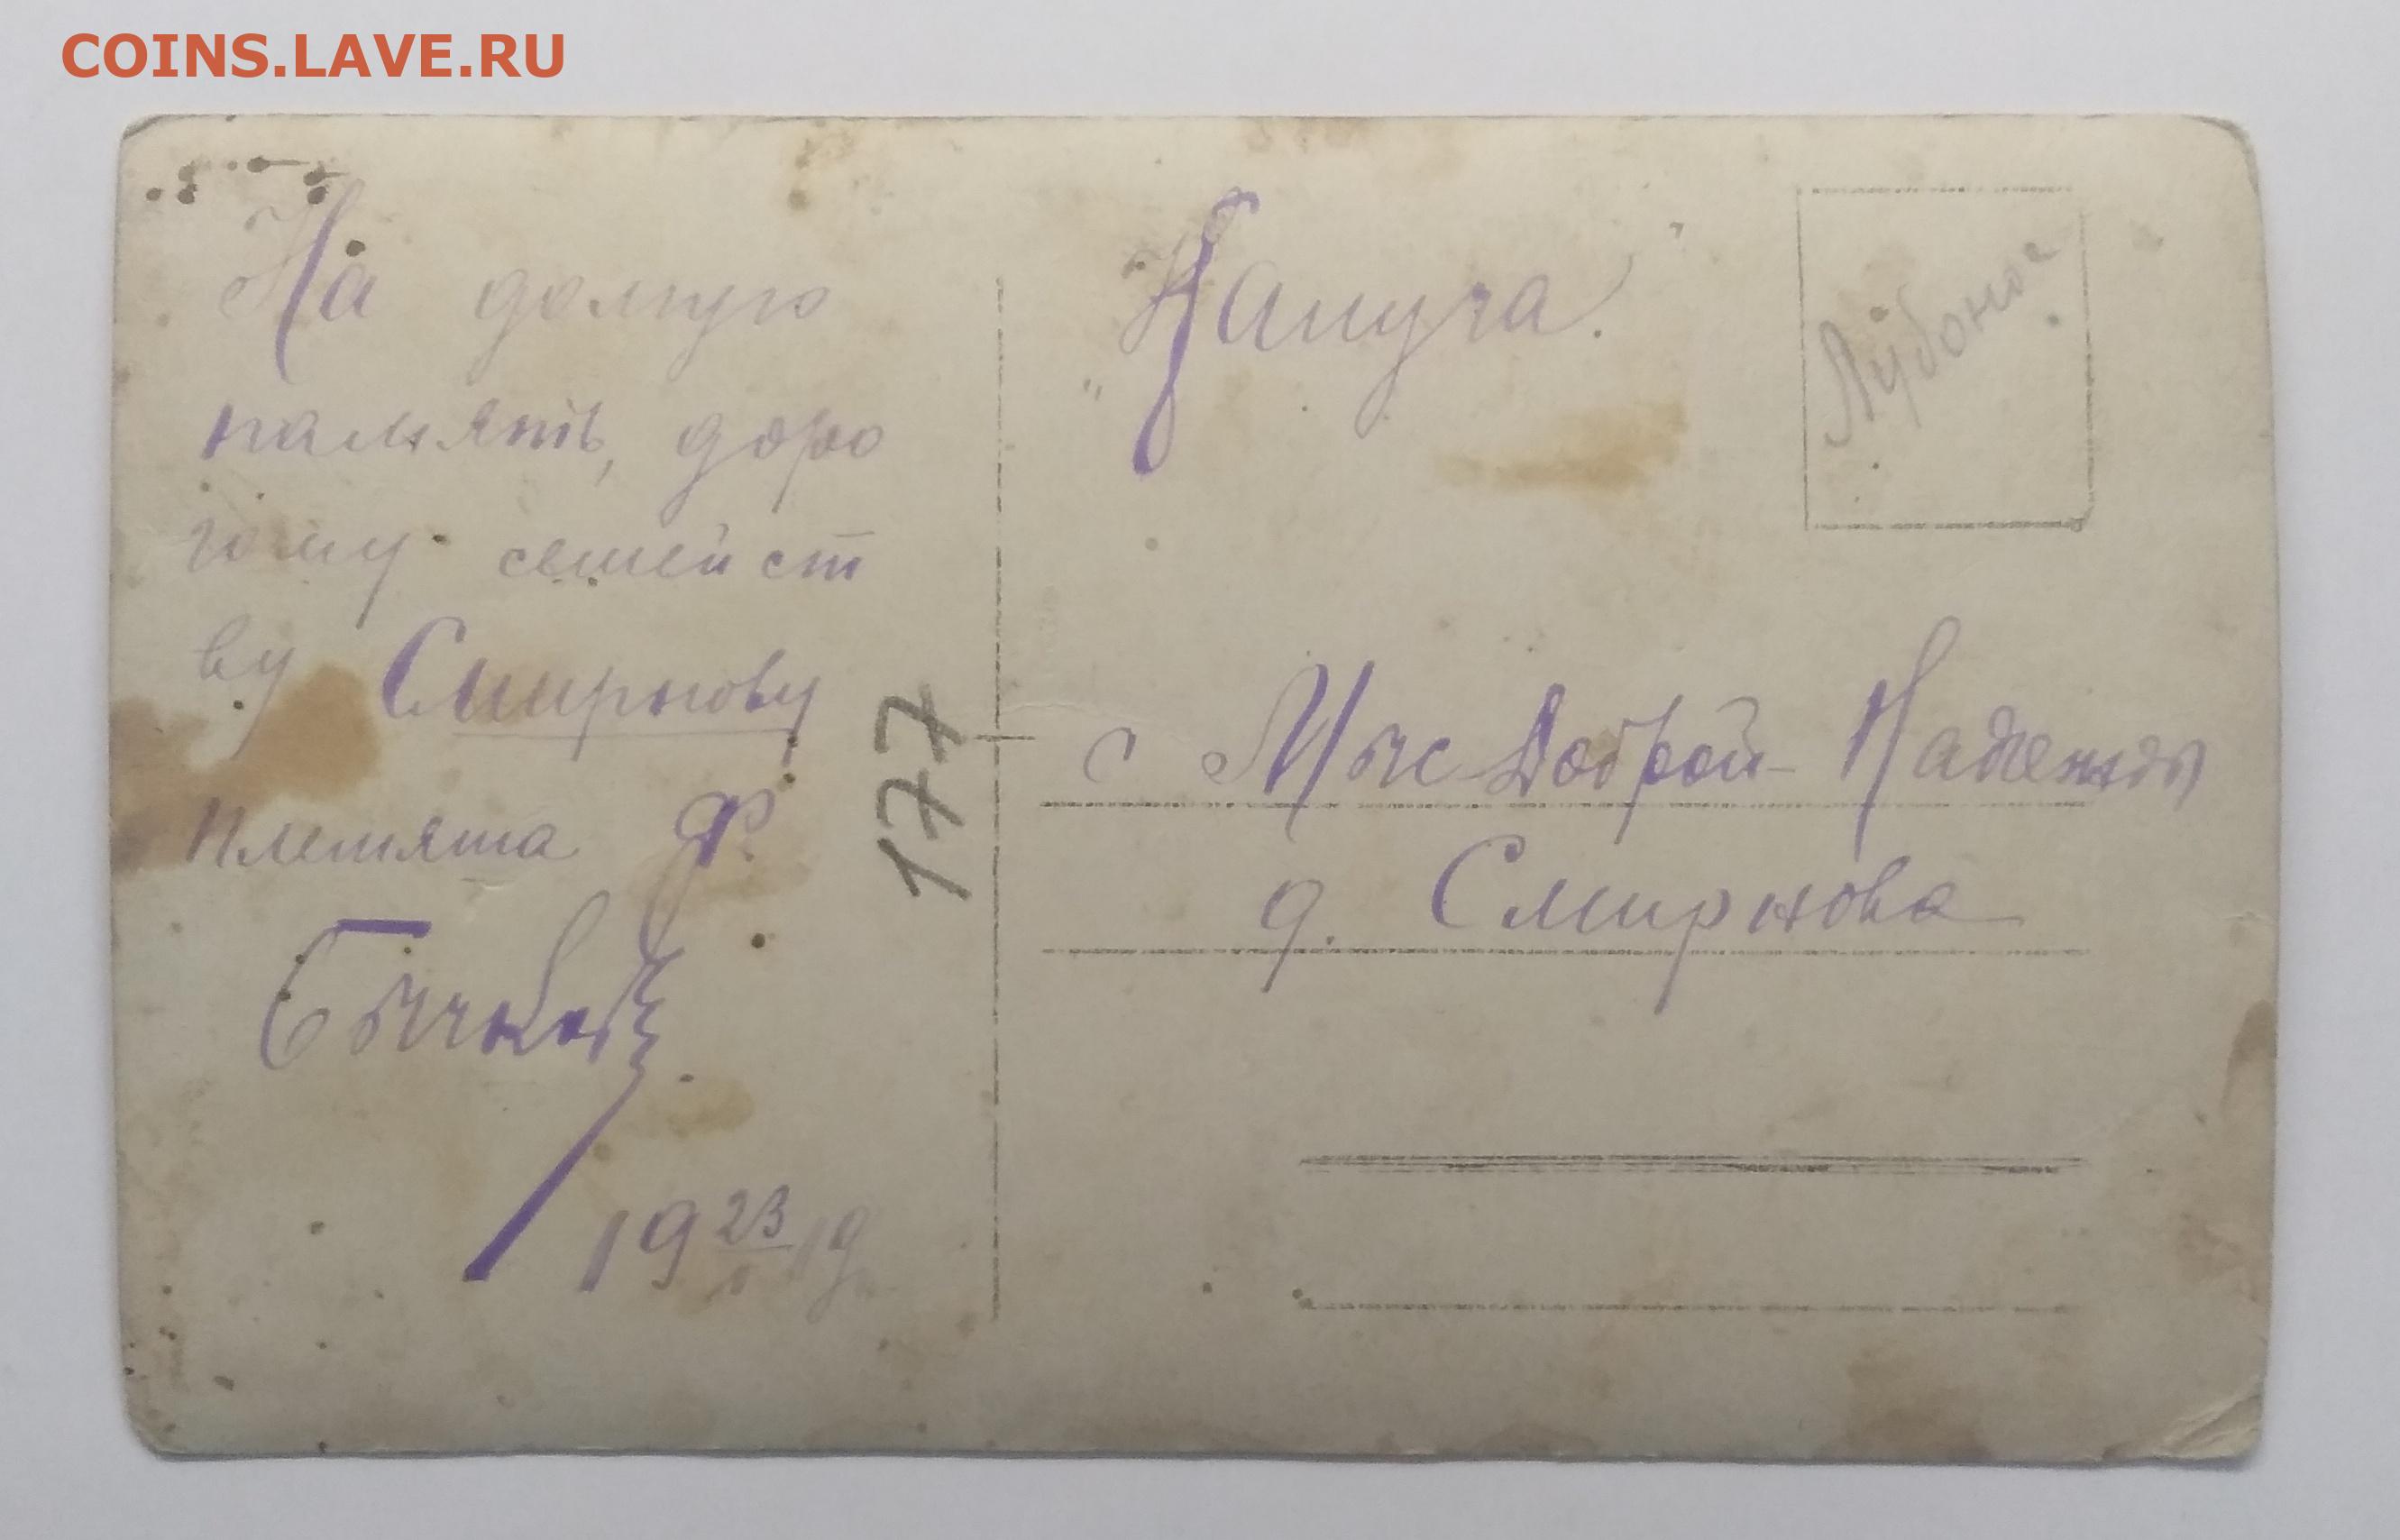 COINS.LAVE.RU
На долгую
память, доро
гому семейст
ву Смирнову
племята Ф.
Бычков
19 23/1 19
177
с Мыс Доброй-Надежды
д. Смирнова